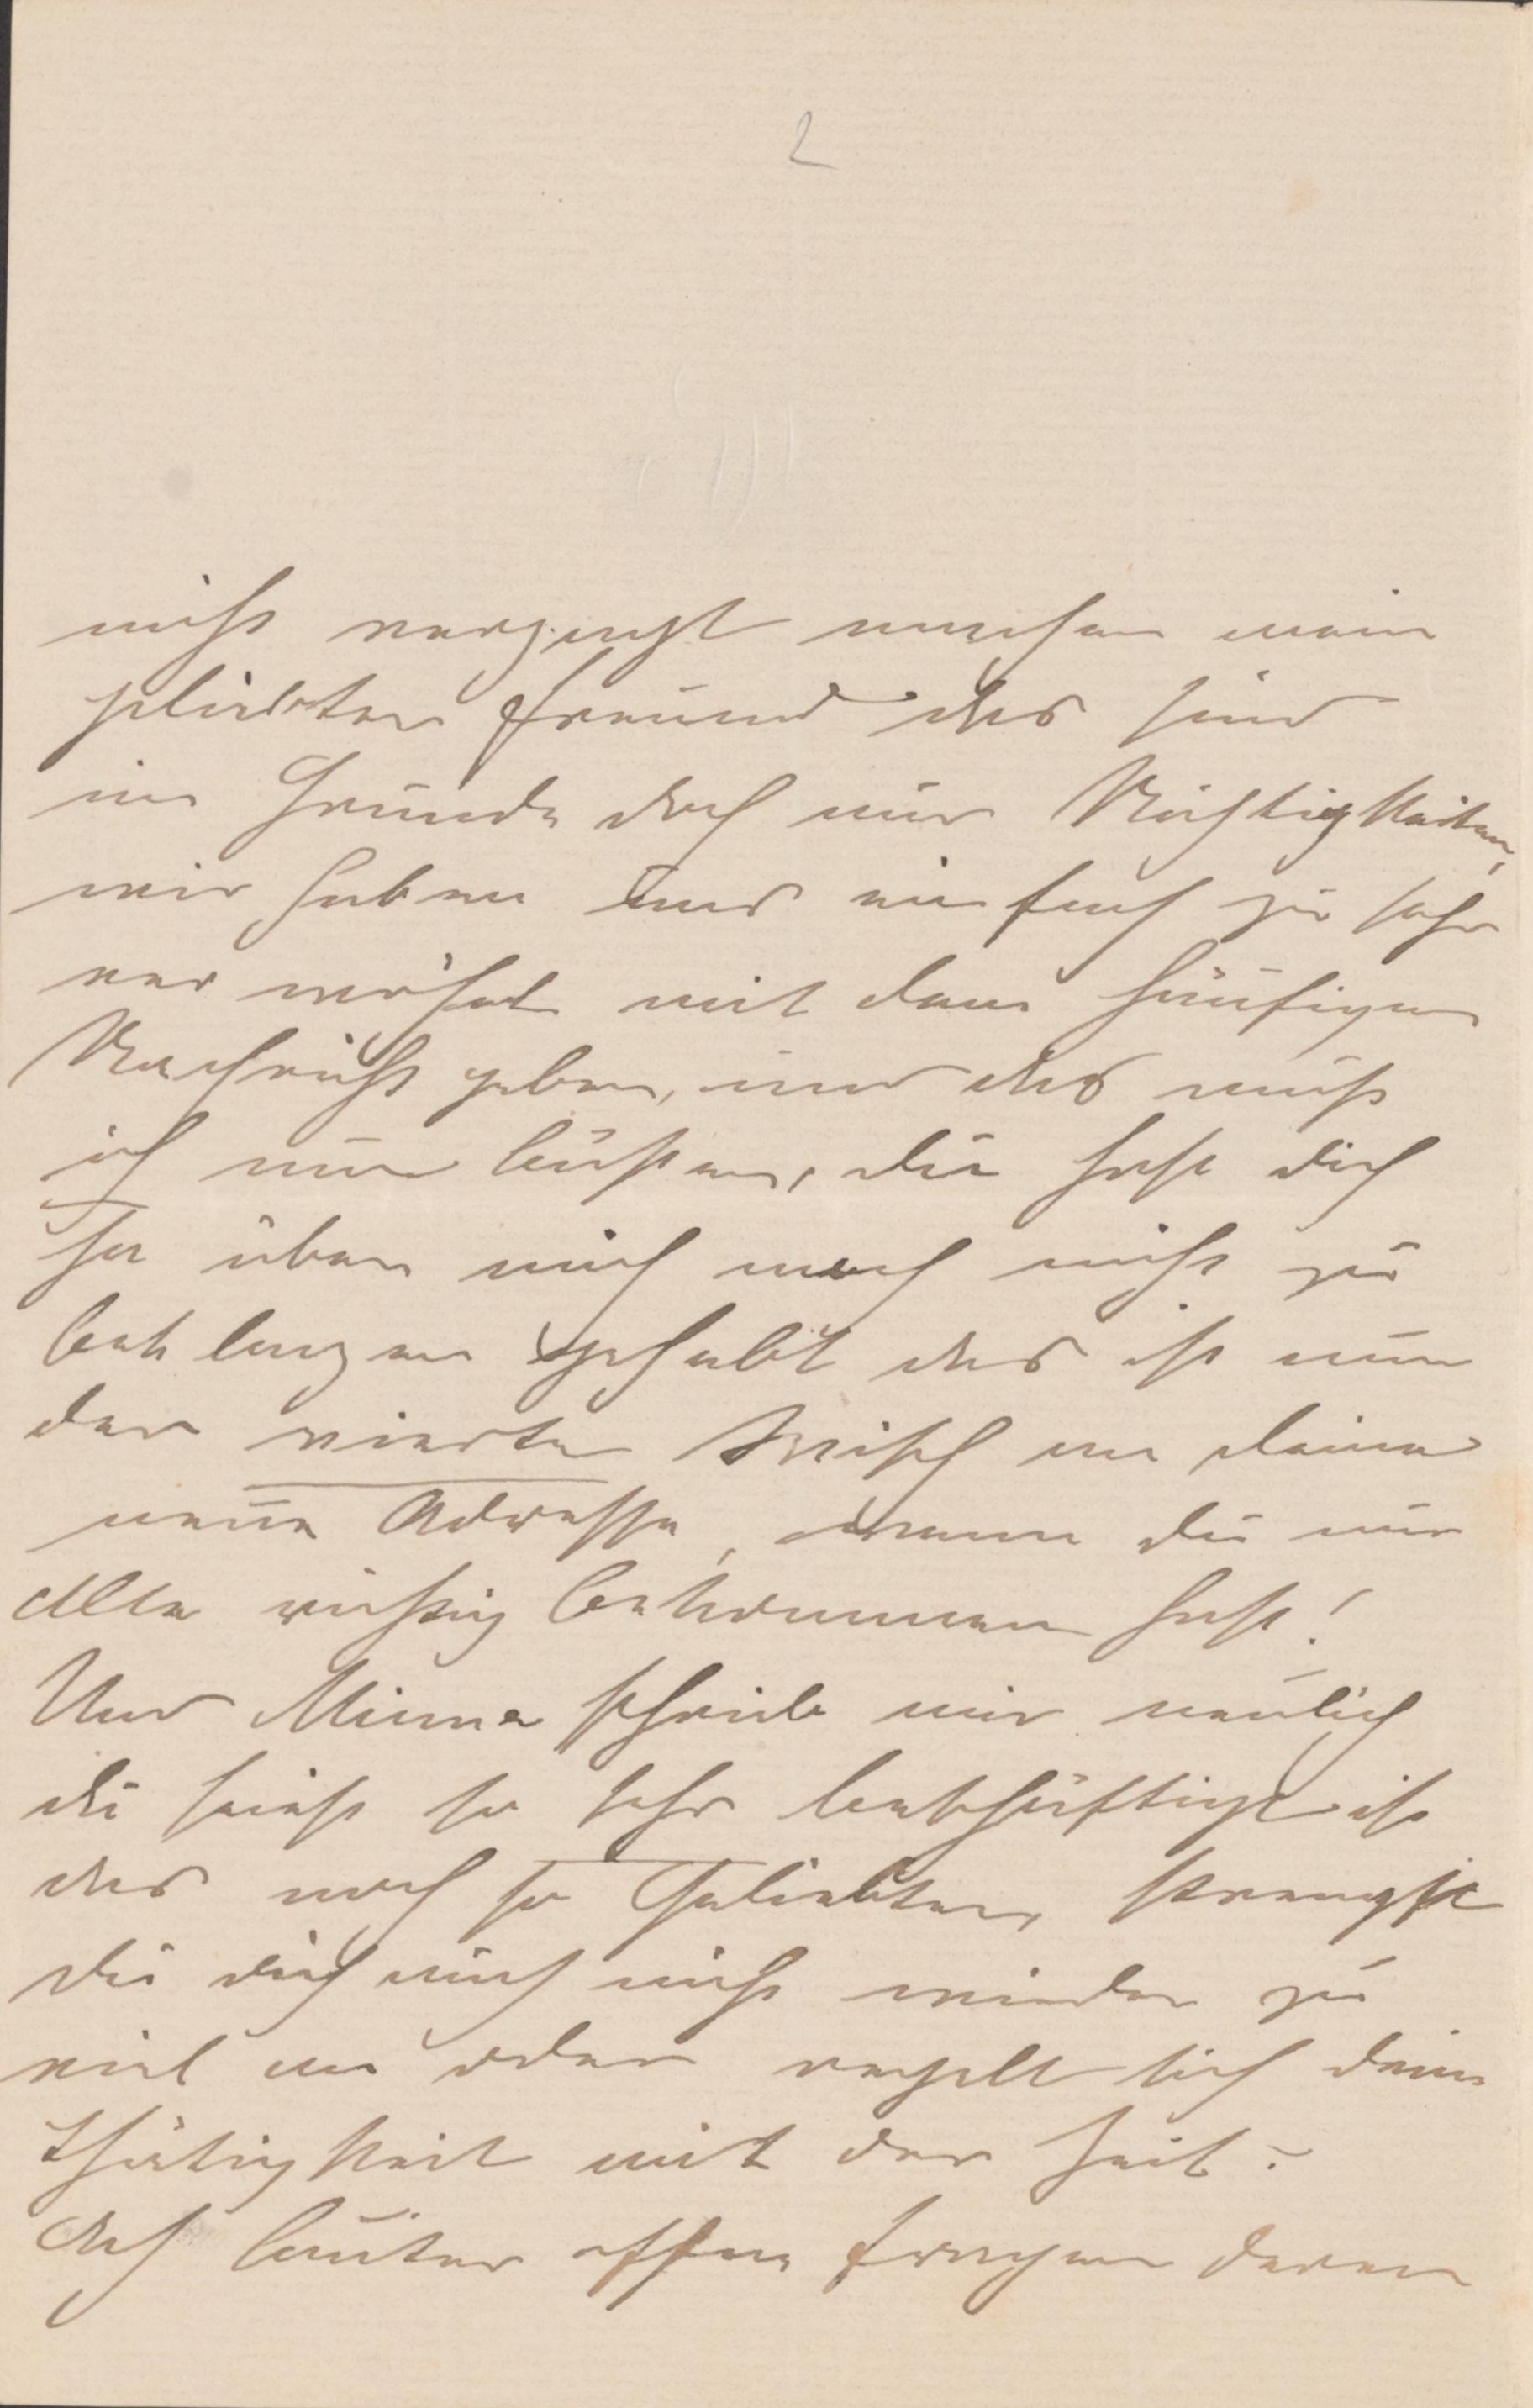 2
nicht verzagt machen mein
geliebter Freund das sind
im Grunde doch nur Nichtigkeiten,
wir haben uns einfach zu sehr
verwöhnt mit dem häufigen
Nachricht geben, und das muß
ich nun büßen, du hast dich
ja über mich noch nicht zu
beklagen gehabt das ist nun
der vierte Wisch an deine
neue Adresse, wenn du nur
Alle richtig bekommen hast!
Und Minna schrieb mir neulich
du seiest so sehr beschäftigt ist
das noch so Geliebter, strengst
du dich auch nicht wieder zu
viel an oder regelt sich deine
Thätigkeit mit der Zeit?
Ach lauter offene Fragen deren